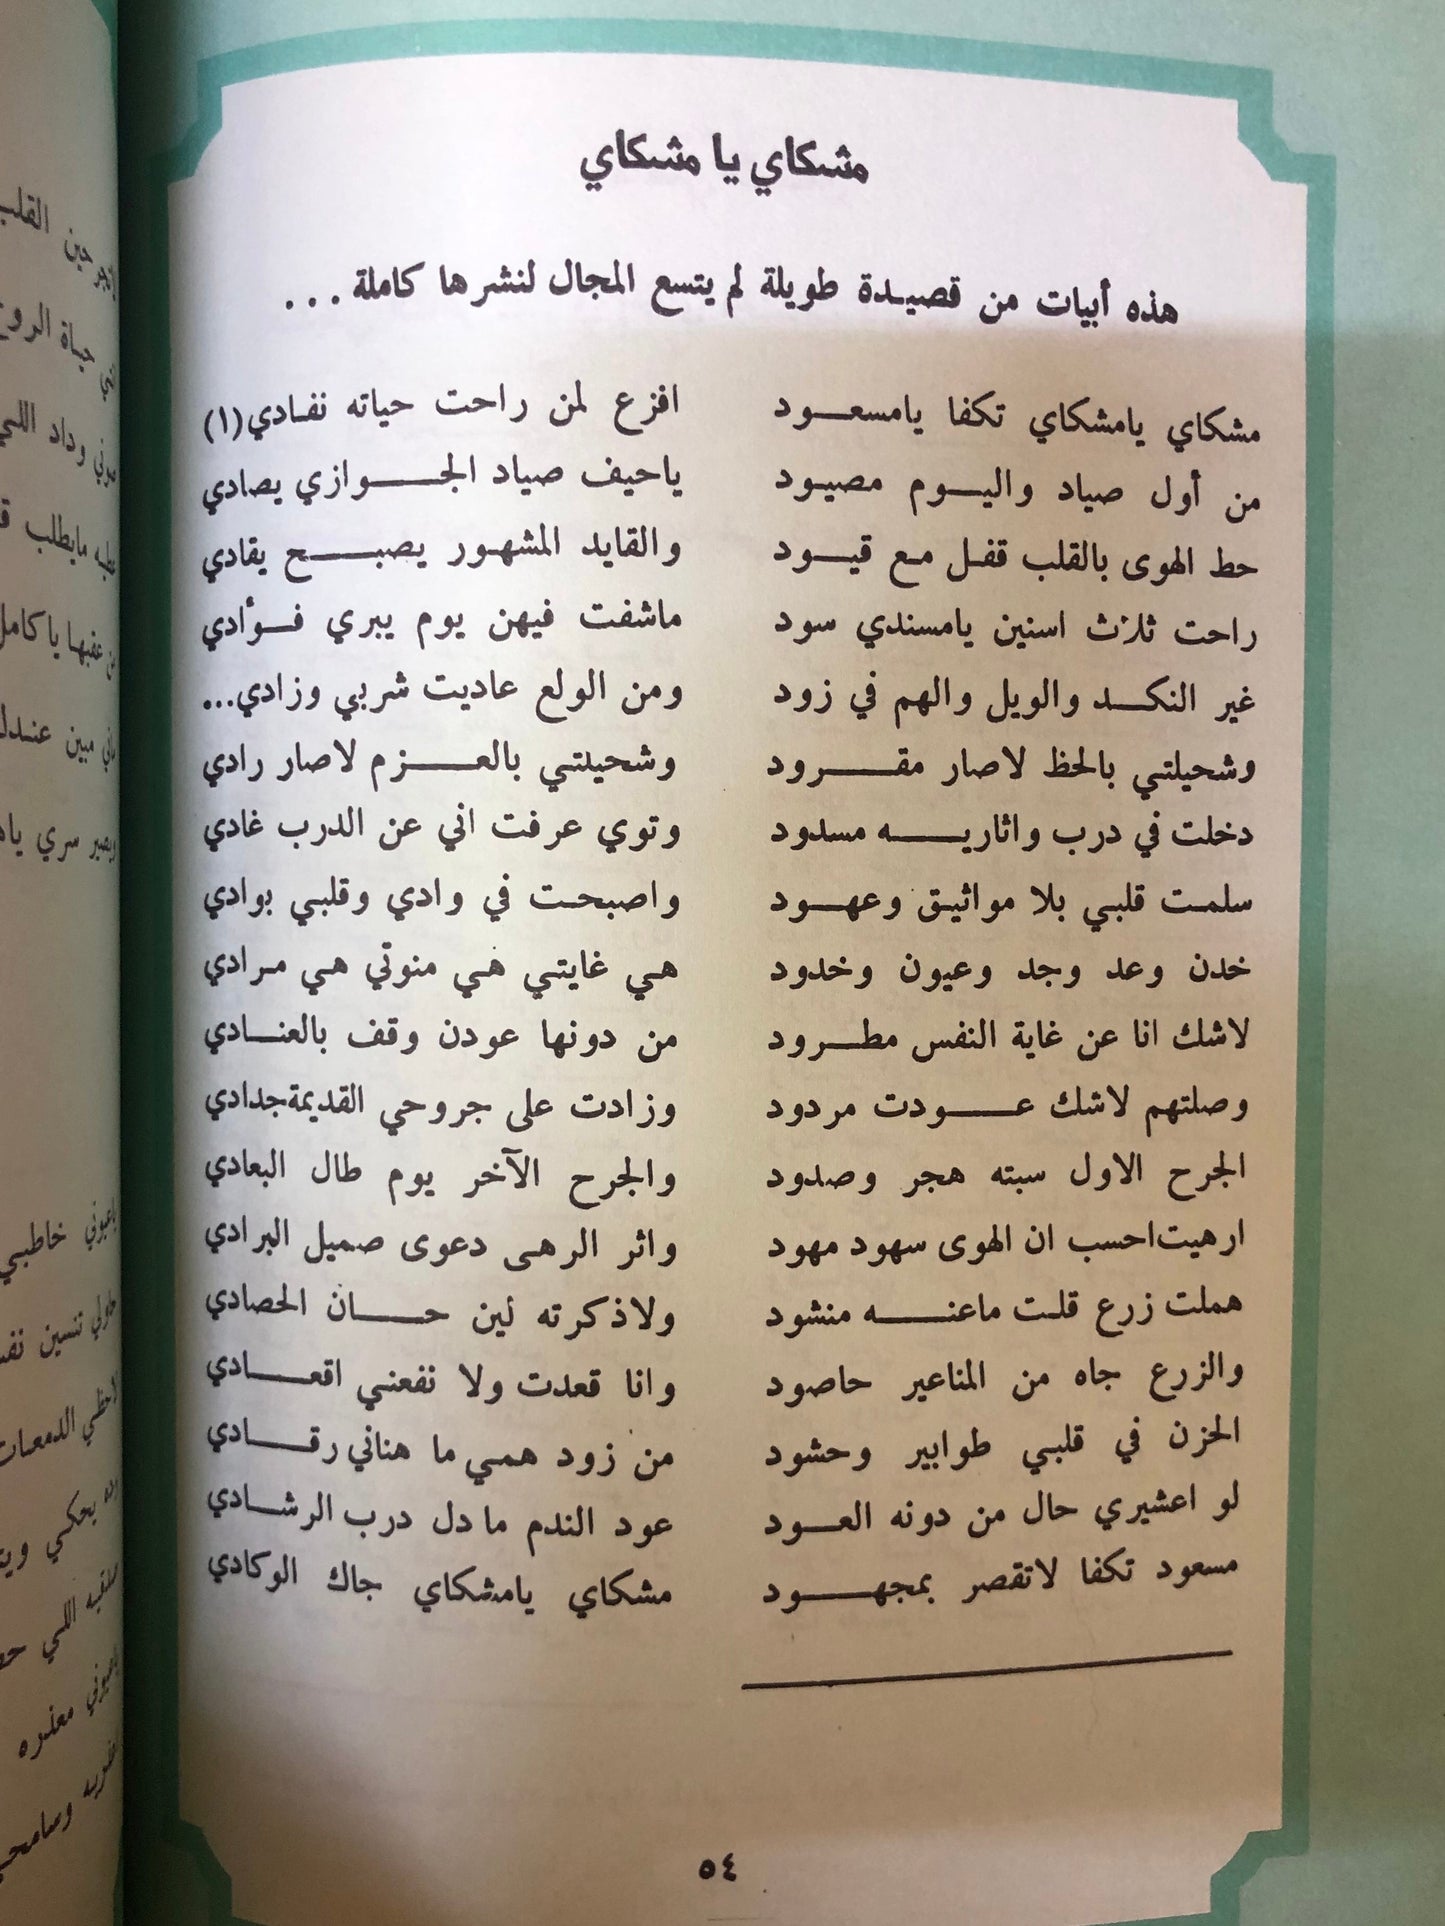 مشكاي يا مشكاي
هذه أبيات من قصيدة طويلة لم يتسع المجال لنشرها كاملة ...
مشكاي يامشكاي تكفا يامسعود افزع لمن راحت حياته نفادي(١)
من أول صياد واليوم مصيود ياحيف صياد الجوازي يصادي
حط الهوى بالقلب قفل مع قيود والقايد المشهور يصبح يقادي
راحت ثلاث اسنين يامسندي سود ماشفت فيهن يوم يبري فؤادي
غير النكد والويل والهم في زود ومن الولع عاديت شربي وزادي...
وشحيلتي بالحظ لاصار مقرود وشحيلتي بالعزم لاصار رادي
دخلت في درب واثاريه مسدود وتوي عرفت اني عن الدرب غادي
سلمت قلبي بلا مواثيق وعهود واصبحت في وادي وقلبي بوادي
خدن وعد وجد وعيون وخدود هي غايتي هي منوتي هي مرادي
لاشك انا عن غاية النفس مطرود من دونها عودن وقف بالعنادي
وصلتهم لاشك عودت مردود وزادت على جروحي القديمة جدادي
الجرح الاول سبته هجر وصدود والجرح الآخر يوم طال البعادي
ارهيت احسب ان الهوى سهود مهود واثر الرهى دعوى صميل البرادي
هملت زرع قلت ماعنه منشود ولاذكرته لين حان الحصادي
والزرع جاه من المناعير حاصود وانا قعدت ولا نفعني اقعادي
الحزن في قلبي طوابير وحشود من زود همي ما هناني رقادي
لو اعشيري حال من دونه العود عود الندم مادل درب الرشادي
مسعود تكفا لاتقصر بمجهود مشكاي يامشكاي جاك الوكادي
٥٤